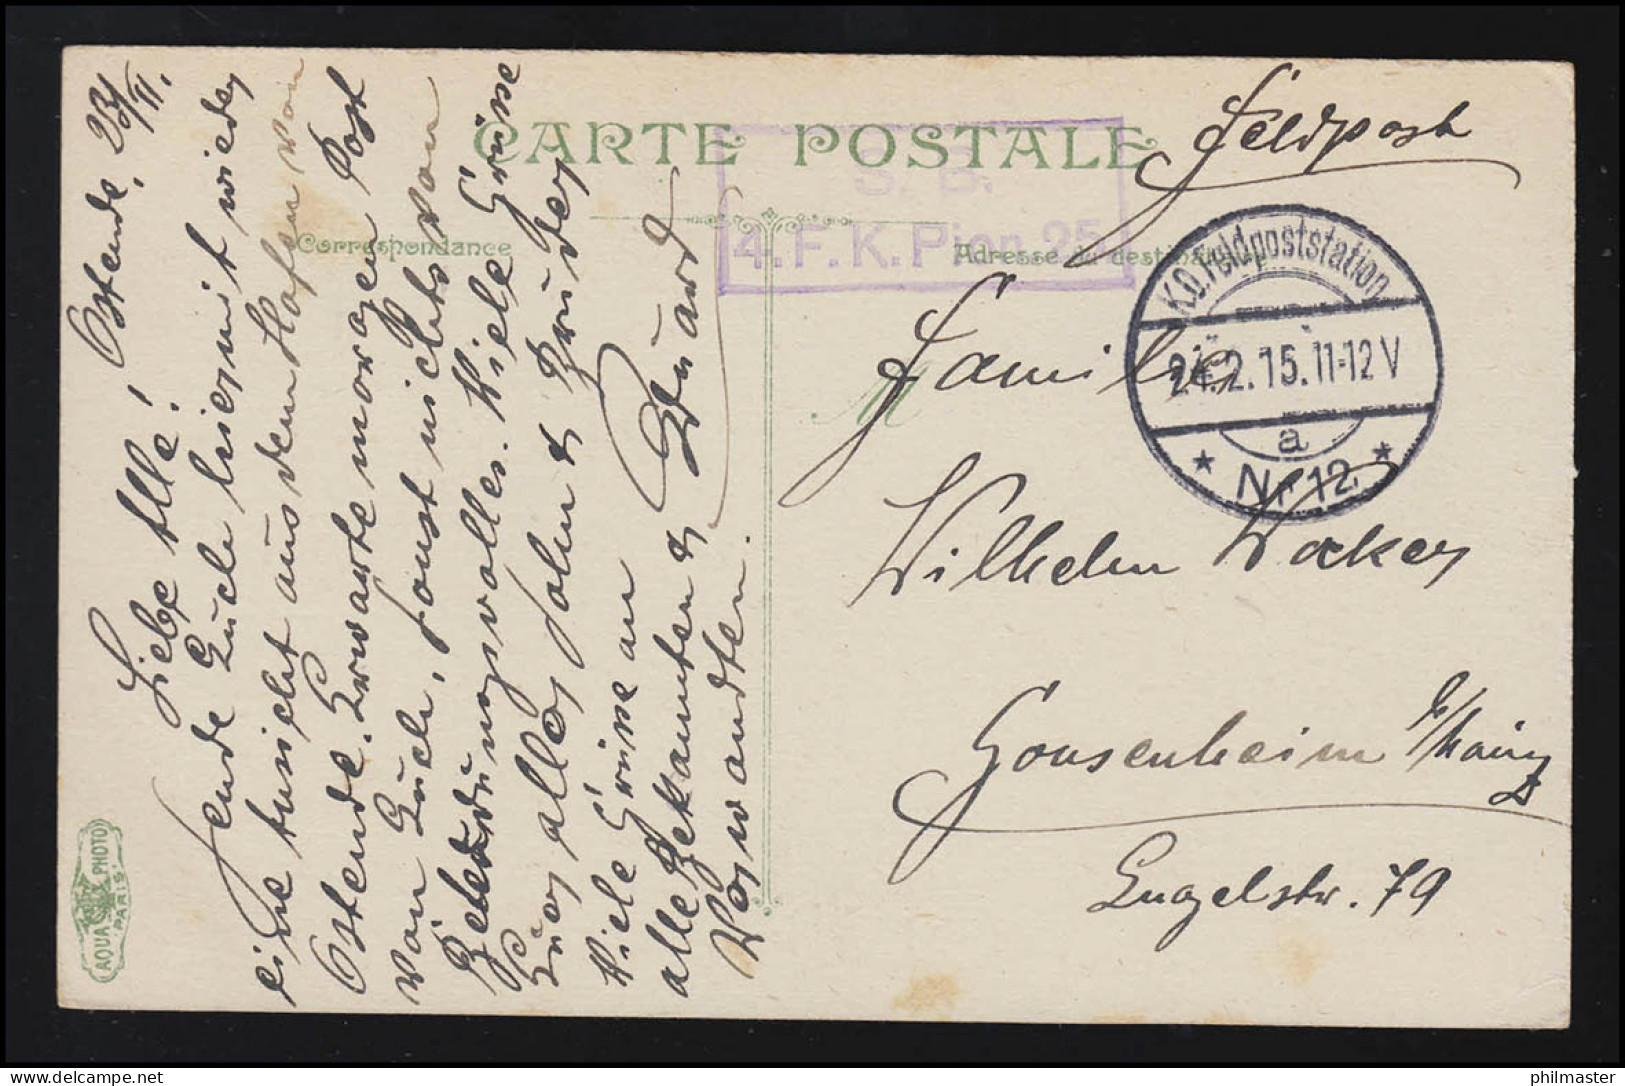 CARTE POSTALE
Correspondance
Adresse du destinataire
Feldpost
S. B.
4. F. K. Pion. 25
K.D. Feldpoststation
24.2.15. 11-12 V
a
* Nr 12 *
M
Familie
Wilhelm Wacker
Gonsenheim b/Mainz
Engelstr. 79
Ostende, 23/II.
Liebe Alle!
sende Euch hiermit wieder
eine Ansicht aus dem Hafen von
Ostende. Erwarte morgen Post
von Euch, sonst nichts von
Bedeutung. Viele Grüsse
Euer aller Sohn & Bruder
Eduard
Viele Grüsse an
alle Bekannten &
Verwandten.
AQUA PHOTO
PARIS
philmaster